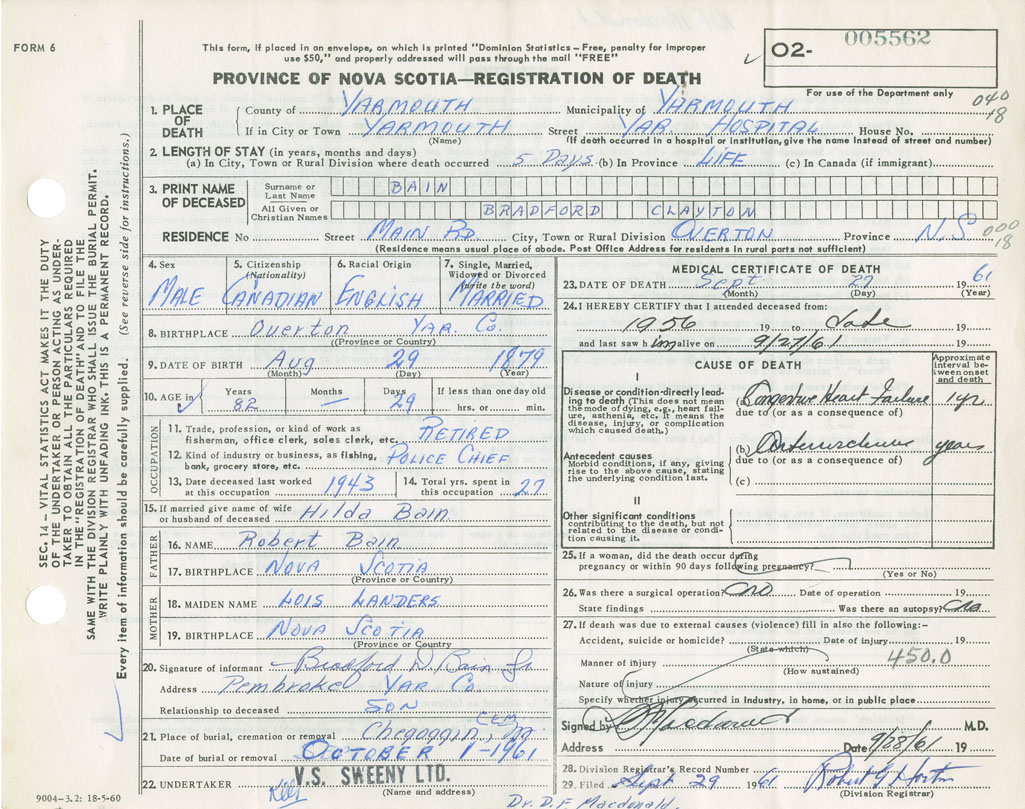 FORM 6
This form, if placed in an envelope, on which is printed "Dominion Statistics – Free, penalty for improper
use $50," and properly addressed will pass through the mail "FREE"
PROVINCE OF NOVA SCOTIA—REGISTRATION OF DEATH
O2- 005562
For use of the Department only
040
18
1. PLACE OF DEATH
County of YARMOUTH Municipality of YARMOUTH
If in City or Town YARMOUTH Street YAR HOSPITAL House No.
(Name) (If death occurred in a hospital or institution, give the name instead of street and number)
2. LENGTH OF STAY (in years, months and days)
(a) In City, Town or Rural Division where death occurred 5 Days (b) In Province LIFE (c) In Canada (if immigrant)
3. PRINT NAME OF DECEASED
Surname or Last Name BAIN
All Given or Christian Names BRADFORD CLAYTON
RESIDENCE No Street MAIN RD. City, Town or Rural Division OVERTON Province N.S
000
18
(Residence means usual place of abode. Post Office Address for residents in rural parts not sufficient)
4. Sex MALE
5. Citizenship (Nationality) CANADIAN
6. Racial Origin ENGLISH
7. Single, Married, Widowed or Divorced (write the word) MARRIED
8. BIRTHPLACE Overton YAR. Co.
(Province or Country)
9. DATE OF BIRTH Aug 29 1879
(Month) (Day) (Year)
10. AGE in Years 82 Months — Days 29 If less than one day old hrs. or min.
OCCUPATION
11. Trade, profession, or kind of work as
fisherman, office clerk, sales clerk, etc. RETIRED
12. Kind of industry or business, as fishing,
bank, grocery store, etc. POLICE CHIEF
13. Date deceased last worked
at this occupation 1943
14. Total yrs. spent in
this occupation 27
15. If married give name of wife
or husband of deceased Hilda Bain
FATHER
16. NAME Robert Bain
17. BIRTHPLACE NOVA SCOTIA
(Province or Country)
MOTHER
18. MAIDEN NAME LOIS LANDERS
19. BIRTHPLACE NOVA SCOTIA
(Province or Country)
20. Signature of informant Bradford D. Bain Jr
Address Pembroke YAR Co.
Relationship to deceased SON
21. Place of burial, cremation or removal Chegoggin, CEM
Date of burial or removal OCTOBER 1-1961
22. UNDERTAKER V.S. SWEENY LTD.
(Name and address)
9004—3.2: 18-5-60
MEDICAL CERTIFICATE OF DEATH
23. DATE OF DEATH Sept. 27 1961
(Month) (Day) (Year)
24. I HEREBY CERTIFY that I attended deceased from:
1956 19 to date 19
and last saw h im alive on 9/27/61 19
CAUSE OF DEATH
Approximate interval between onset and death
I
Disease or condition directly leading to death (This does not mean the mode of dying, e.g., heart failure, asthenia, etc. It means the disease, injury, or complication which caused death.)
(a) Congestive Heart Failure 1 yr
due to (or as a consequence of)
Antecedent causes
Morbid conditions, if any, giving rise to the above cause, stating the underlying condition last.
(b) years
due to (or as a consequence of)
(c)
II
Other significant conditions
contributing to the death, but not related to the disease or condition causing it.
25. If a woman, did the death occur during
pregnancy or within 90 days following pregnancy?
(Yes or No)
26. Was there a surgical operation? no Date of operation 19
State findings Was there an autopsy? no
27. If death was due to external causes (violence) fill in also the following:–
Accident, suicide or homicide? Date of injury 19
(State which)
450.0
Manner of injury
(How sustained)
Nature of injury
Specify whether injury occurred in Industry, in home, or in public place
Signed by M.D.
Address Date 9/28/61 19
28. Division Registrar's Record Number
29. Filed Sept 29 1961 Robert G Horton
(Division Registrar)
Dr. D.F. Macdonald.
SEC. 14 — VITAL STATISTICS ACT MAKES IT THE DUTY
OF THE UNDERTAKER OR PERSON ACTING AS UNDER-
TAKER TO OBTAIN ALL THE PARTICULARS REQUIRED
IN THE "REGISTRATION OF DEATH" AND TO FILE THE
SAME WITH THE DIVISION REGISTRAR WHO SHALL ISSUE THE BURIAL PERMIT.
WRITE PLAINLY WITH UNFADING INK. THIS IS A PERMANENT RECORD.
Every item of information should be carefully supplied. (See reverse side for instructions.)